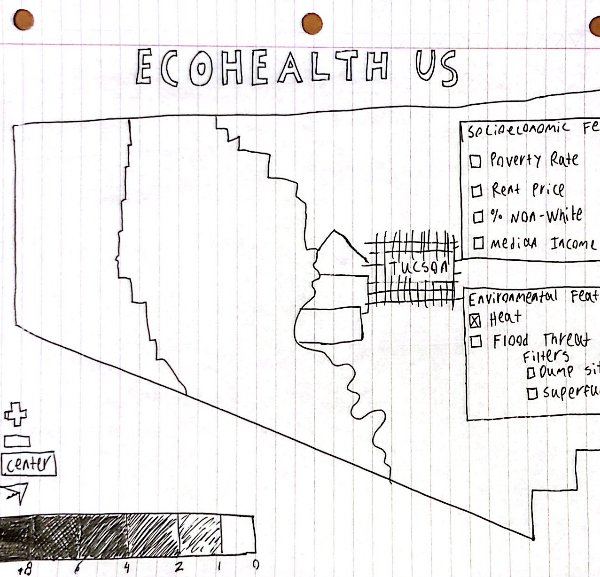 ECOHEALTH US
Socioeconomic Fe
Poverty Rate
Rent Price
% Non-White
median Income
TUCSON
Environmental Feat
Heat
Flood Threat
Filters
Dump sit
Superfu
center
+8 6 4 2 1 0